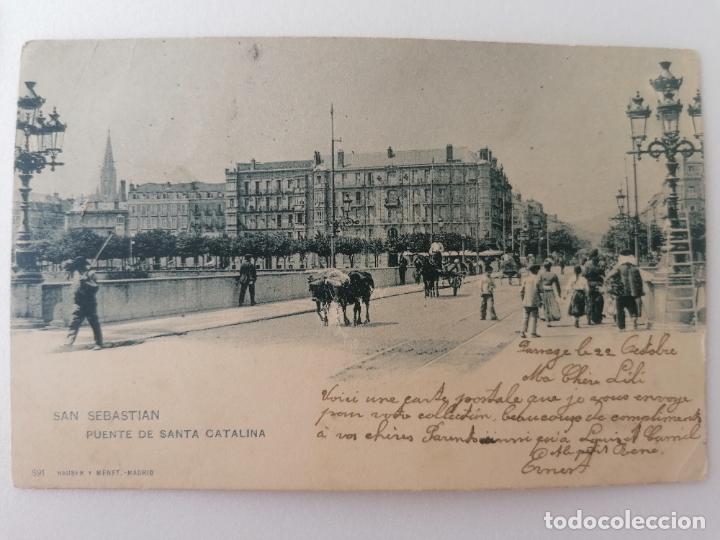 SAN SEBASTIAN
PUENTE DE SANTA CATALINA
591 HAUSER Y MENET.-MADRID
le 22 Octobre
Ma Chère Lili
Voici une carte postale que je vous envoye
pour votre collection, beaucoup de compliments
à vos chères Parents Louis et Camil
petit Réné
Ernest
todocoleccion.net